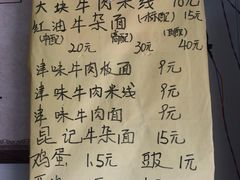 大块牛肉米线 16元
红油牛杂面(标配)15元
(中配) (高配) (豪配)
20元 30元 40元
津味牛肉板面 9元
津味牛肉米线 9元
津味牛肉面 9元
昆记牛杂面 15元
鸡蛋 1.5元 豆皮 1元